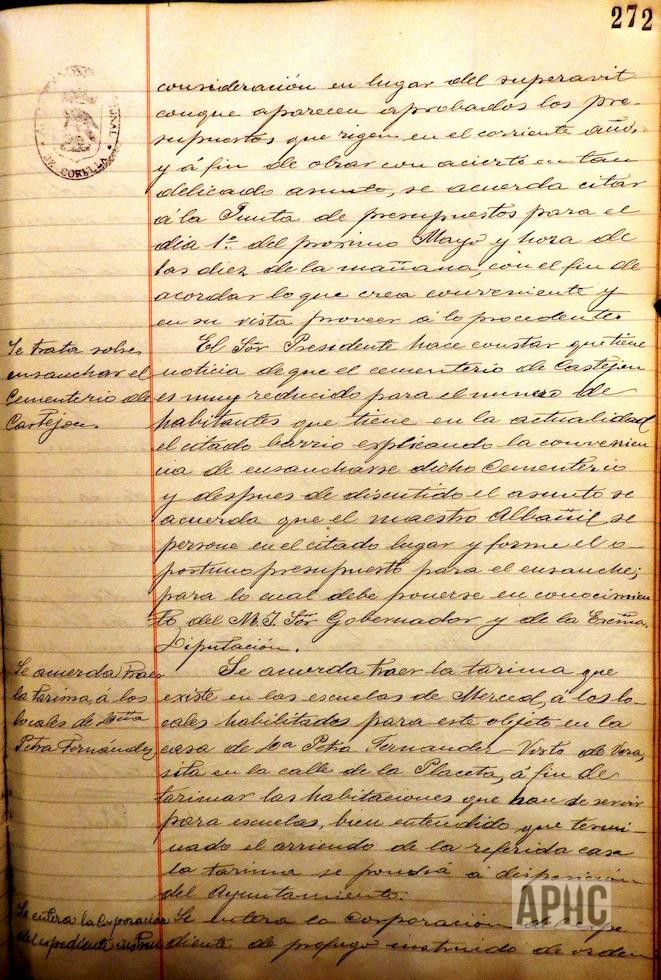 272
DE CORELLA
consideración en lugar del superavit
conque aparecen aprobados los pre-
supuestos que rigen en el corriente año,
y á fin de obrar con acierto en tan
delicado asunto, se acuerda citar
á la Junta de presupuestos para el
dia 1º. del proximo Mayo y hora de
las diez de la mañana, con el fin de
acordar lo que crea conveniente y
en su vista proveer á lo procedente.
Se trata sobre
ensanchar el
Cementerio de
Castejon.
El Sör Presidente hace constar que tiene
noticia de que el cementerio de Castejon
es muy reducido para el numero de
habitantes que tiene en la actualidad
el citado barrio explicando la convenien
cia de ensancharse dicho Cementerio
y despues de discutido el asunto se
acuerda que el maestro Albañil se
persone en el citado lugar y forme el o-
portuno presupuesto para el ensanche;
para lo cual debe ponerse en conocimien
to del M. I. Sör Gobernador y de la Excma.
Diputación.
Se acuerda traer
la tarima á los
locales de Doña
Petra Fernández
Se acuerda traer la tarima que
existe en las escuelas de Merced, á los lo-
cales habilitados para este objeto en la
casa de Da Petra Fernandez Visto de Vera,
sita en la calle de la Placeta, á fin de
tarimar las habitaciones que han de servir
para escuelas, bien entendido que termi-
nado el arriendo de la referida casa
la tarima se pondrá á disposición
del Ayuntamiento.
Se entera la Corporacion
del expediente instrui
Se entera la Corporación del expe
diente de profugo instruido de orden
APHC